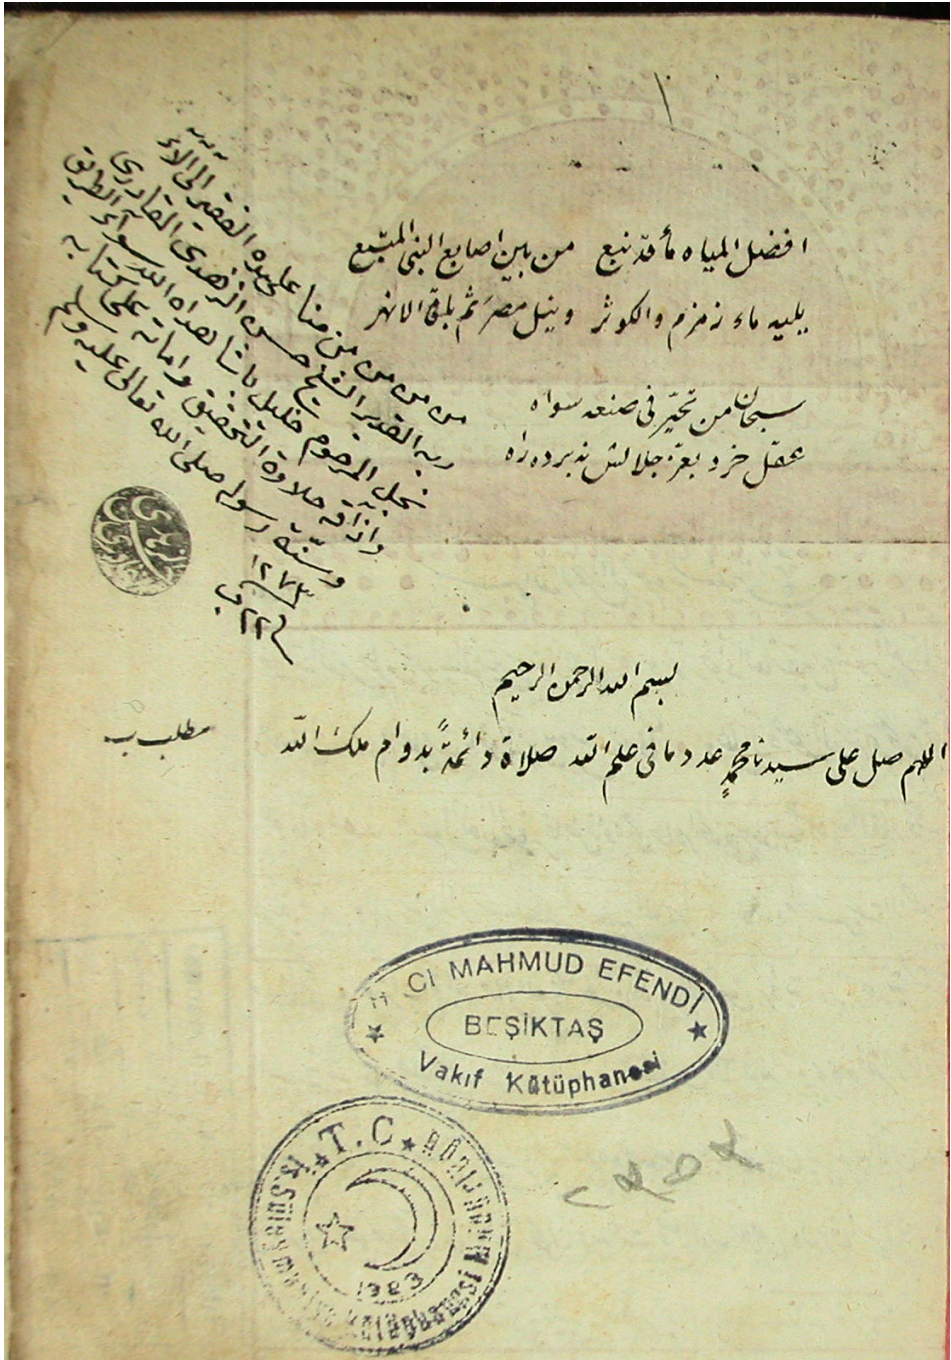 افضل المياه ماء قد نبع من بين اصابع النبى المتبع
يليه ماء زمزم والكوثر ونيل مصر ثم باقى الانهر
سبحان من تحيّر فى صنعه سواه
عقل خرد بعز جلالش نبرده راه
من من من من منا على عبده الفقير الى الآء
ربه القدير الشيخ حسن الزهدى القادرى
نجل المرحوم خليل پاشا هداه الله سوآء الطريق
واذاقه حلاوة التحقيق واماته على كتابه
وسنّة رسوله صلى الله تعالى عليه وسلم
١٢٧٣
بسم الله الرحمن الرحيم
اللهم صل على سيدنا محمدٍ عدد ما فى علم الله صلاة دائمةً بدوام ملك الله
مطلب
H CI MAHMUD EFENDİ
BEŞİKTAŞ
Vakıf Kütüphanesi
T.C